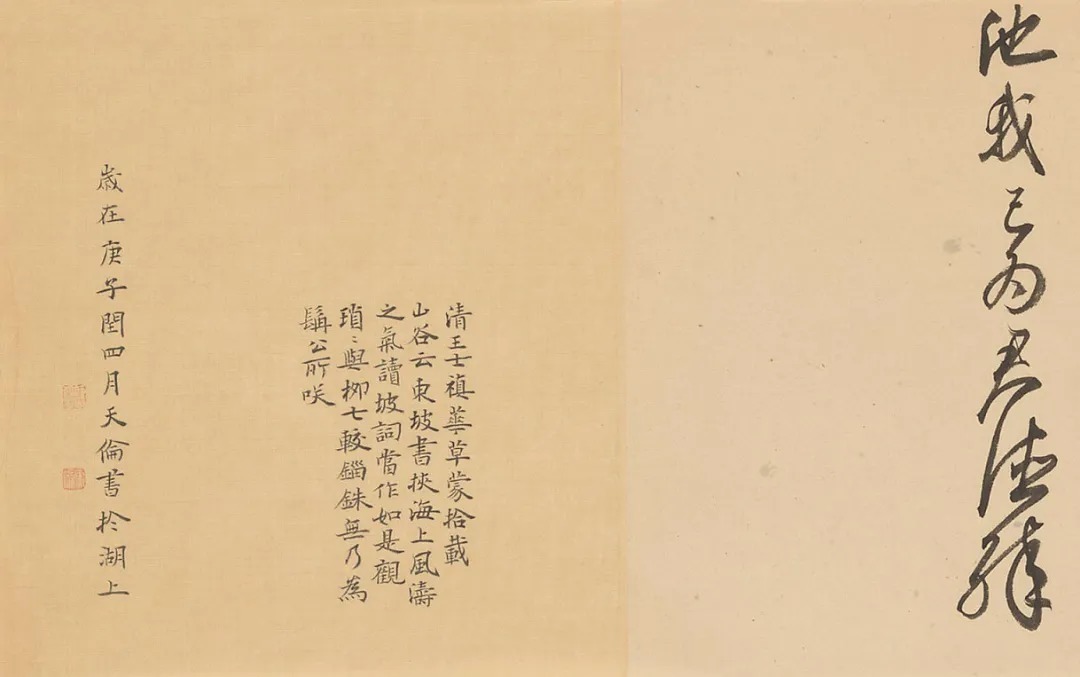 池我已为君德
清王士禛華草蒙拾載
山谷云東坡書挾海上風濤
之氣讀坡詞當作如是觀
瑣〻與柳七較錙銖無乃為
髯公所咲
歲在庚子閏四月天倫書於湖上